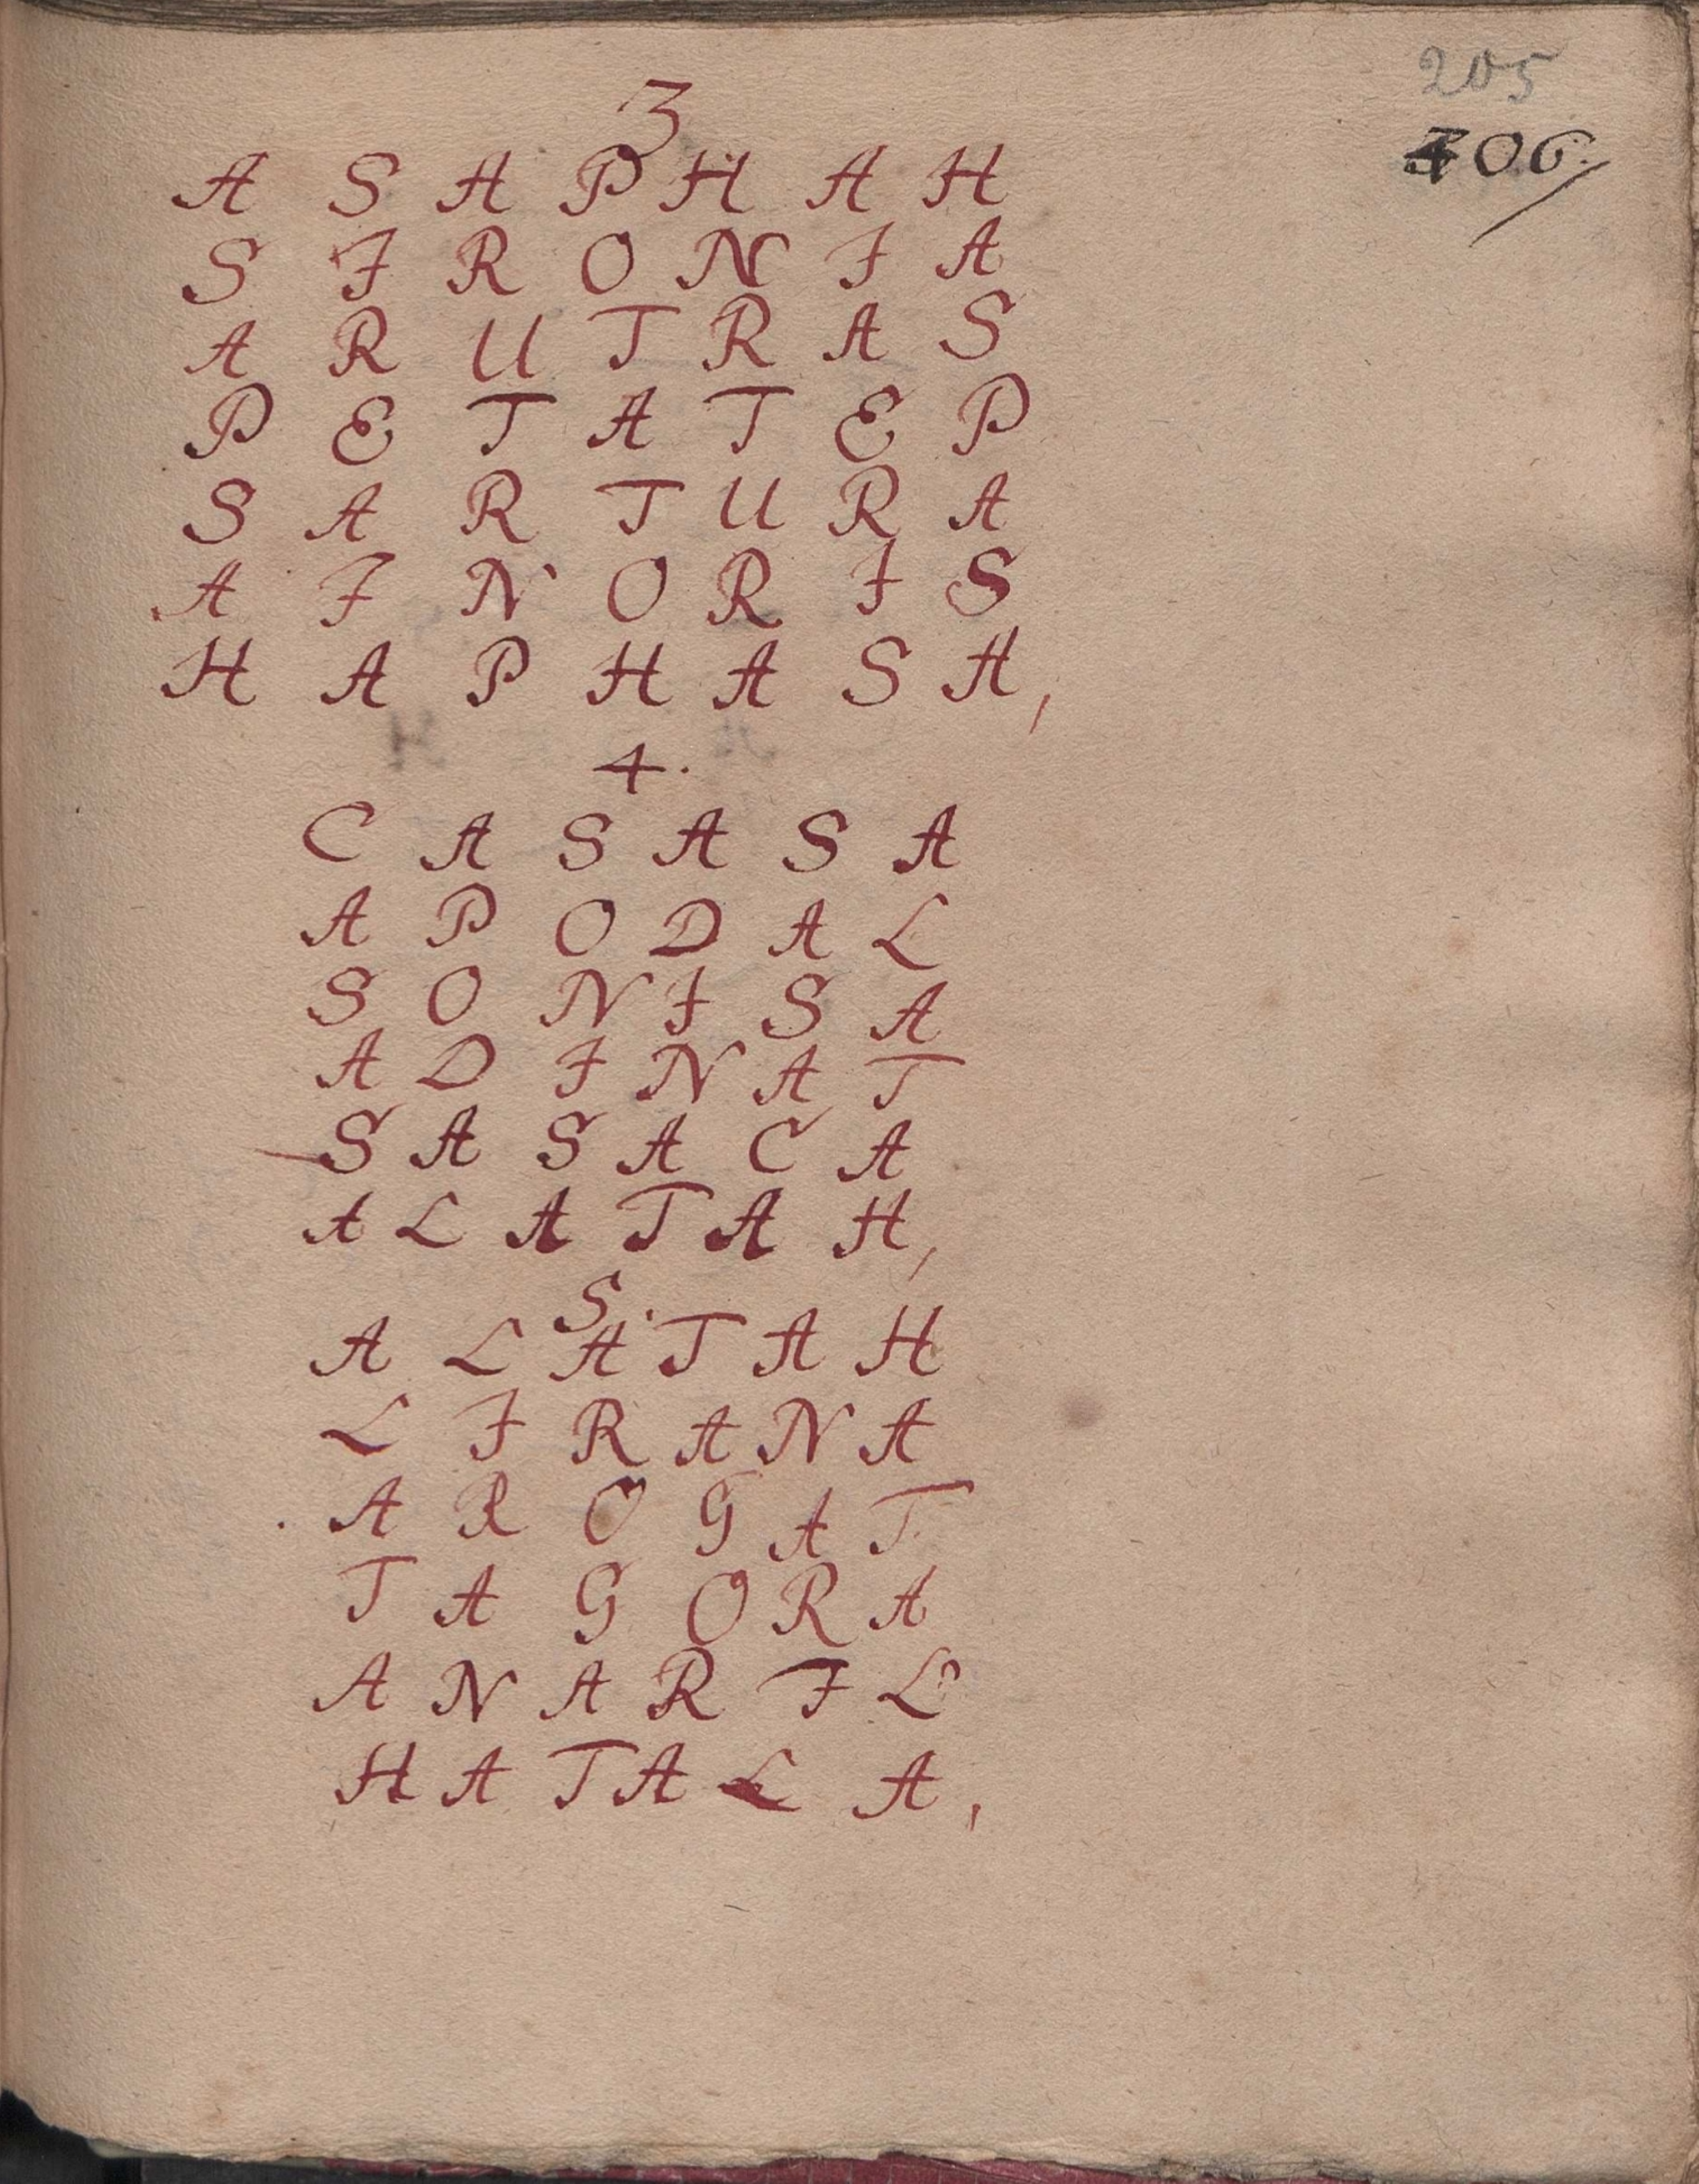 205
406.
3
A S A P H A H
S I R O N I A
A R U T R A S
P E T A T E P
S A R T U R A
A I N O R I S
H A P H A S A,
4.
C A S A S A
A P O D A L
S O N I S A
A D I N A T
S A S A C A
A L A T A H,
5.
A L A T A H
L I R A N A
A R O G A T
T A G O R A
A N A R I L
H A T A L A,